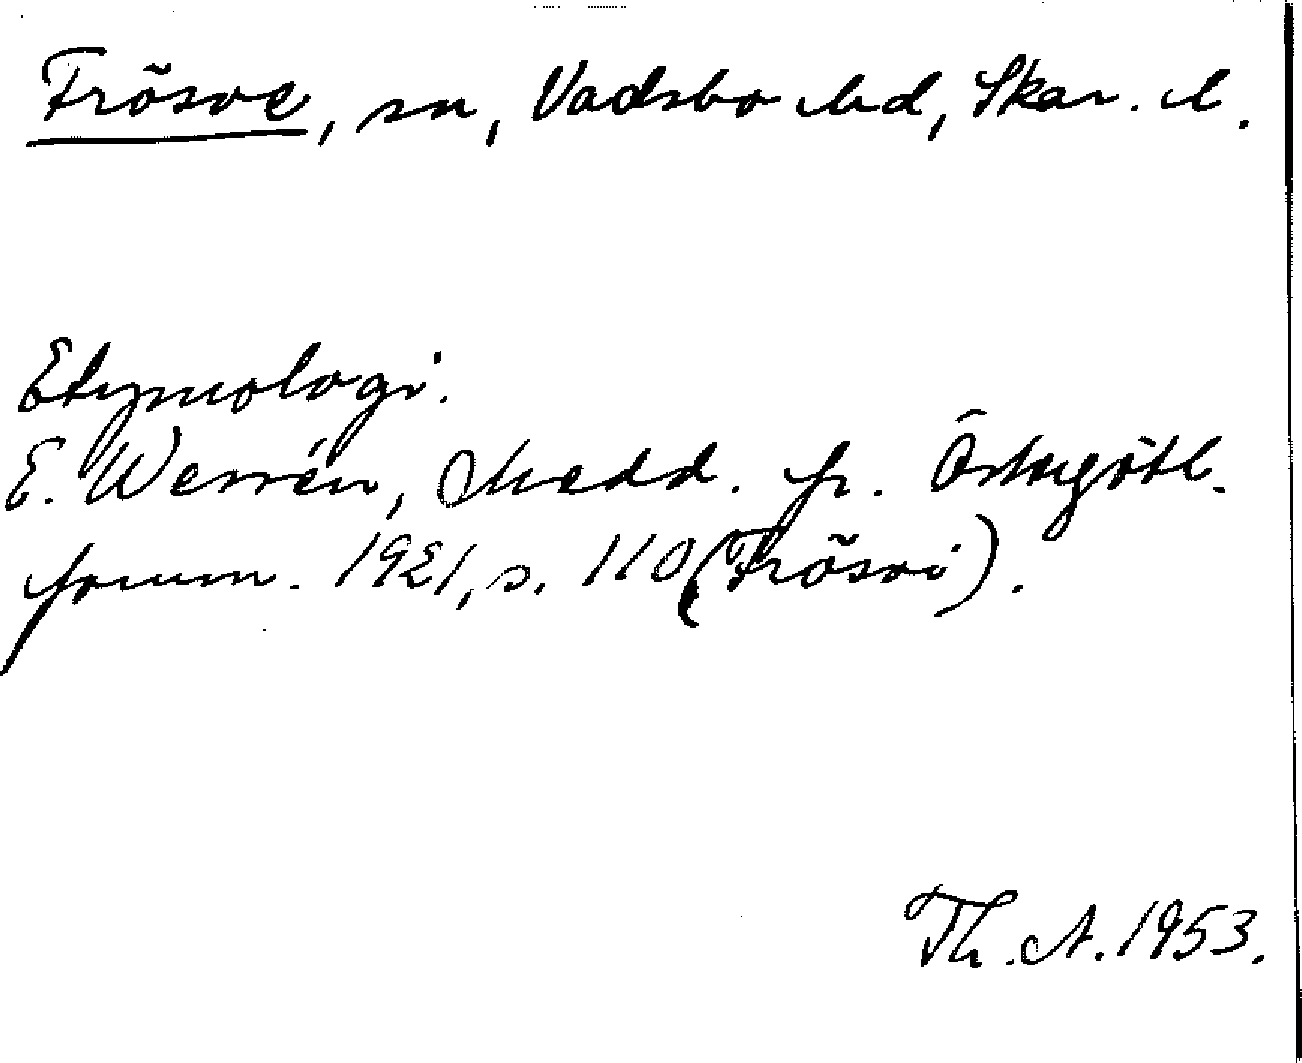 Frösve, sn, Vadsbo hd, Skar. l.
Etymologi.
E. Wessén, Medd. fr. Östergötl.
fornm. 1921, s. 110 (Frösvi).
Th. A. 1953.